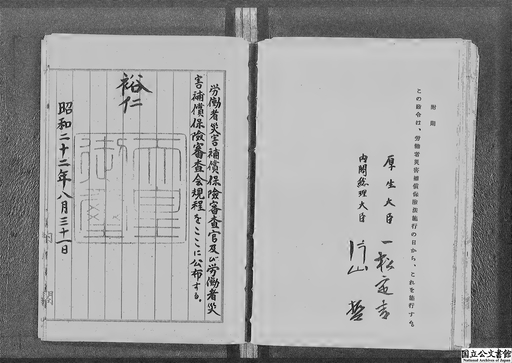 労働者災害補償保險審査官及び労働者災
害補償保險審査会規程をここに公布する。
裕仁
天皇御璽
昭和二十二年八月三十一日
内閣
附則
この政令は、労働者災害補償保險法施行の日から、これを施行する。
厚生大臣 一松定吉
内閣総理大臣 片山哲
国立公文書館
National Archives of Japan